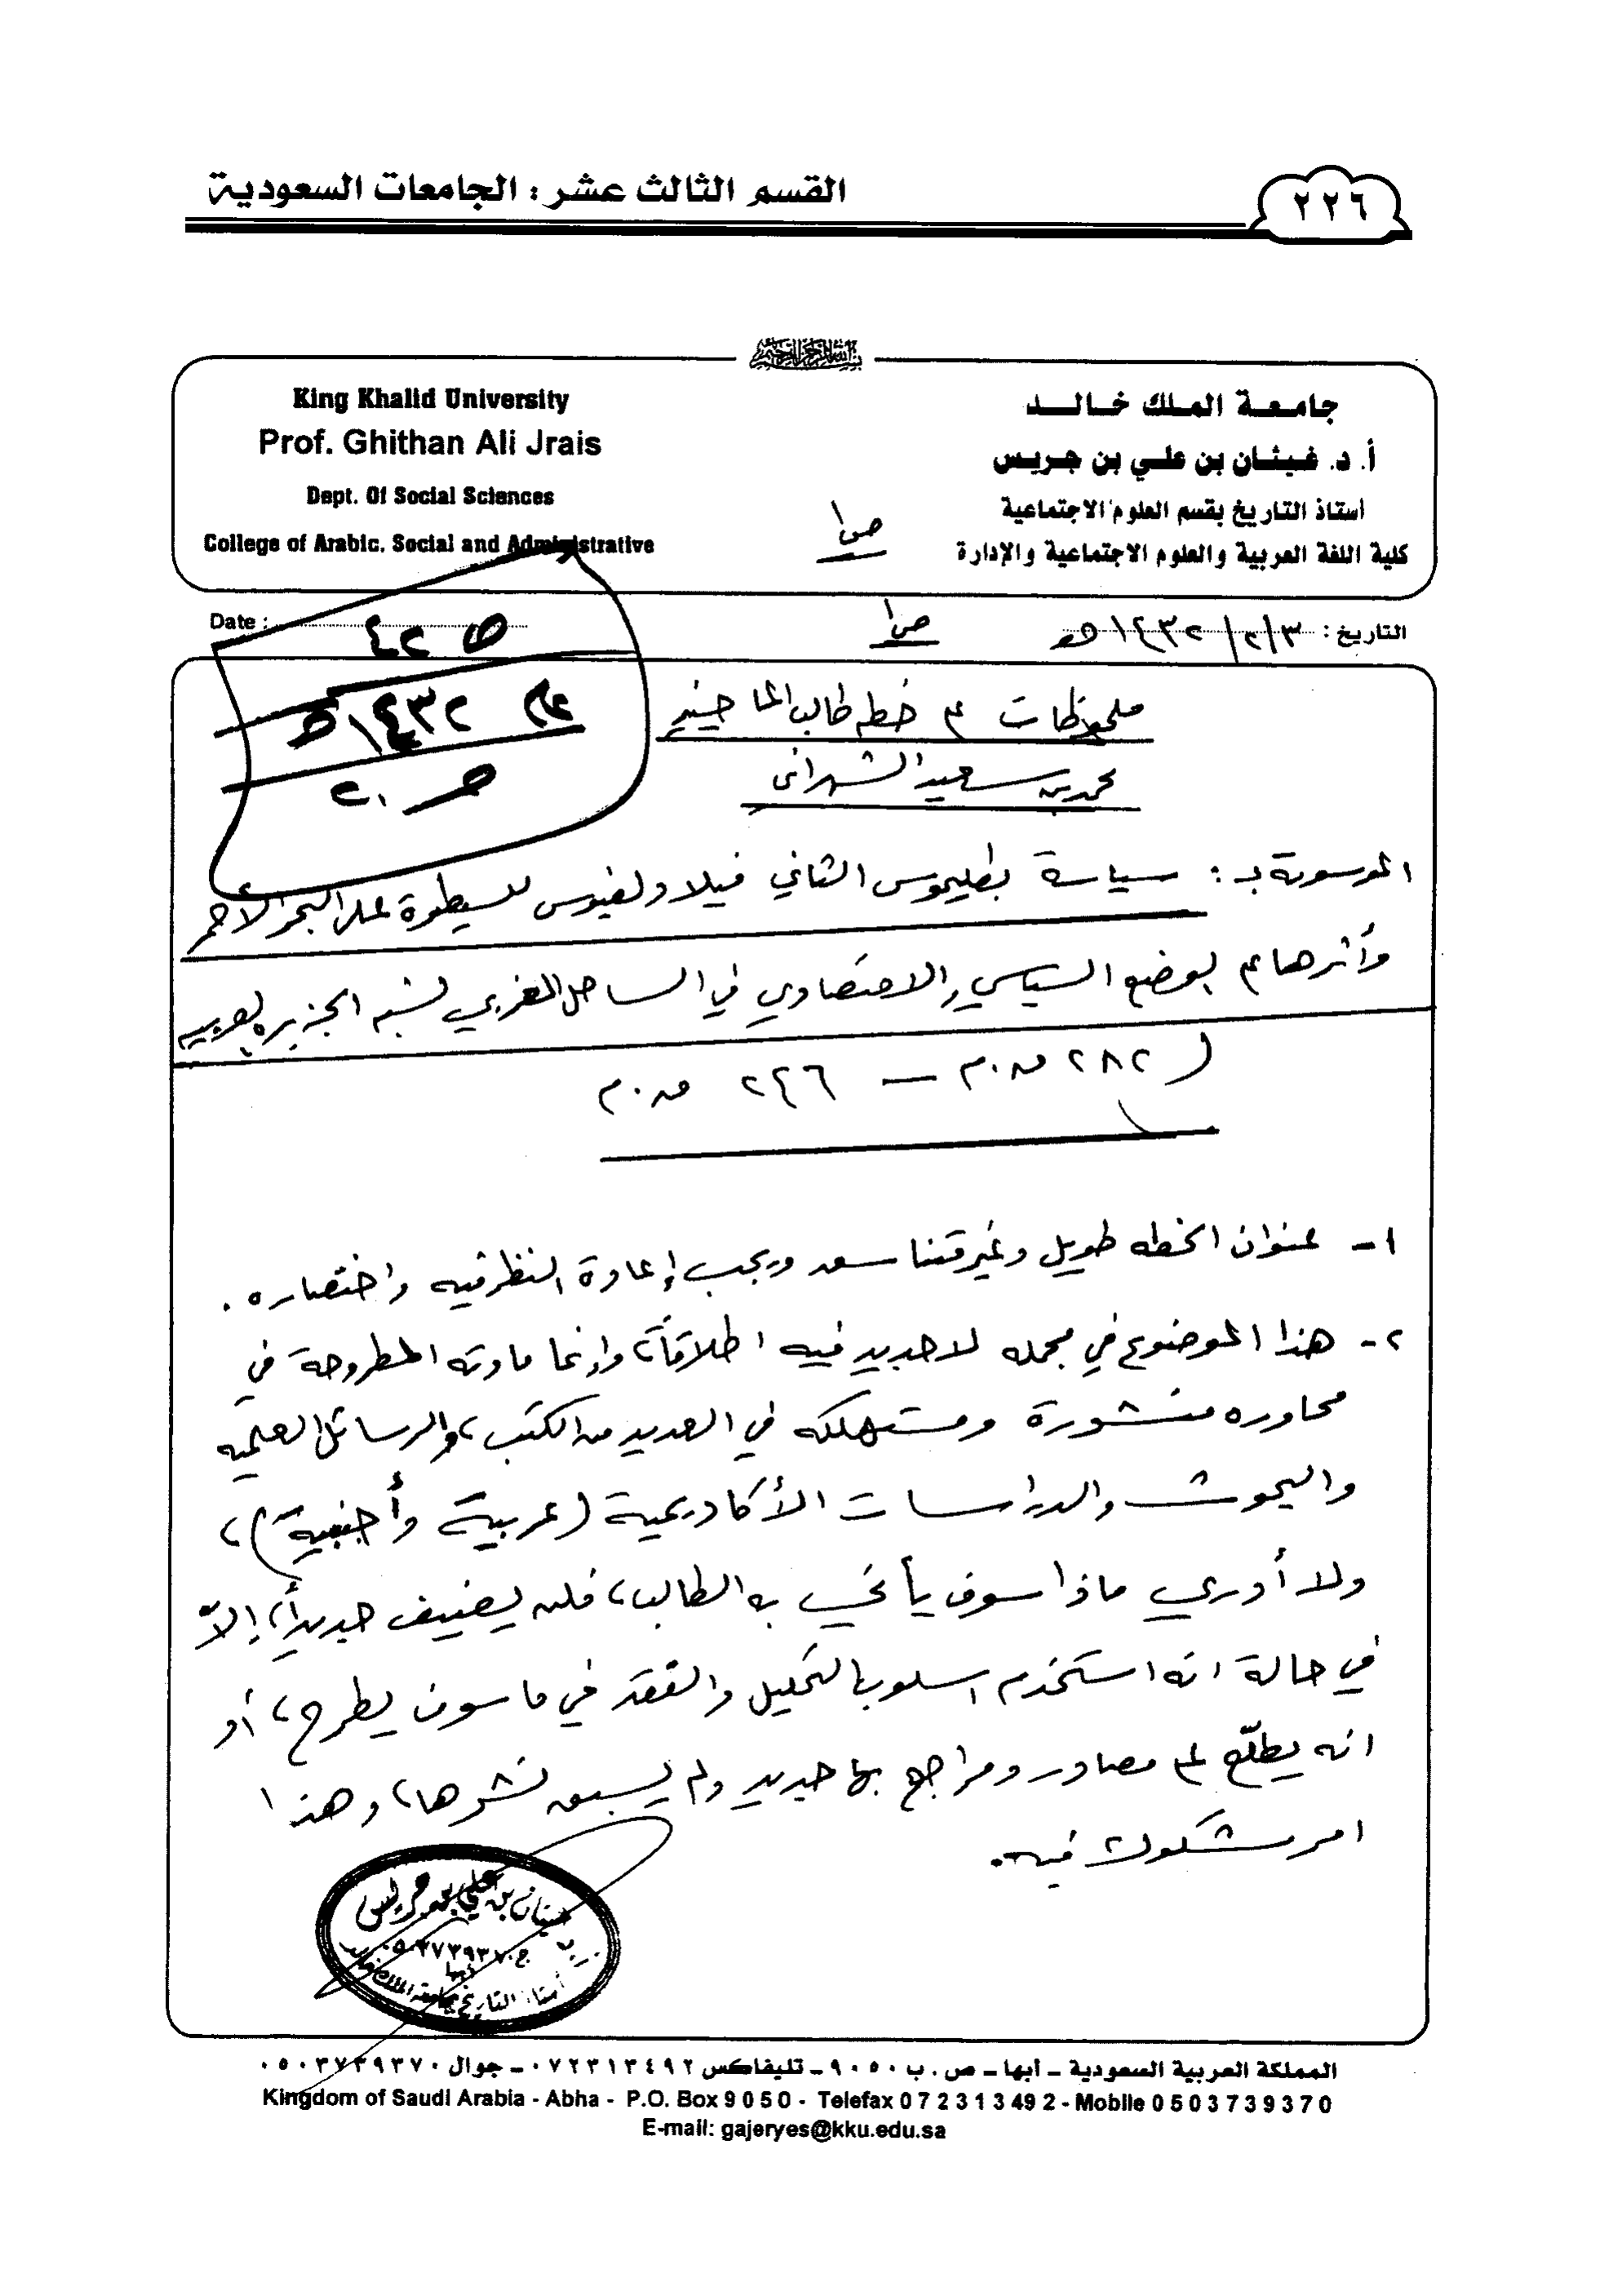 القسم الثالث عشر : الجامعات السعودية
٢٢٦
بسم الله الرحمن الرحيم
جامعة الملك خالد
أ. د. غيثان بن علي بن جريس
أستاذ التاريخ بقسم العلوم الاجتماعية
كلية اللغة العربية والعلوم الاجتماعية والإدارة
King Khalid University
Prof. Ghithan Ali Jrais
Dept. Of Social Sciences
College of Arabic. Social and Administrative
ص١
التاريخ : ٣/٢/١٤٣٢هـ
ص١
Date :
ص ٤٢
عام ١٤٣٢هـ
ملحوظات على خطة طالب الماجستير
محمد بن سعيد الشهراني
الموسومة بـ : سياسة بطليموس الثاني فيلادلفيوس للسيطرة على البحر الأحمر
وأثرها على الوضع السياسي والاقتصادي في الساحل الغربي لشبه الجزيرة العربيه
(٢٨٢ ق.م — ٢٤٦ ق.م
١- عنوان الخطه طويل وغير متناسق ويجب إعادة النظر فيه واختصاره .
٢- هذا الموضوع في مجمله لا جديد فيه اطلاقاً، وإنما مادته المطروحة في
محاوره منشورة ومستهلكه في العديد من الكتب، والرسائل العلميه
والبحوث والدراسات الأكاديمية (عربية وأجنبية)،
ولا أدري ماذا سوف يأتي به الطالب، فلن يضيف جديداً، إلاّ
في حالة انه استخدم اسلوب التحليل والنقد في ما سوف يطرح، أو
انه يطلّع على مصادر ومراجع بها جديد ولم يسبق نشرها، وهذا
امر مشكوك فيه.
غيثان بن علي بن جريس
ج.٠٥٠٣٧٣٩٣٧٠
أبها
أستاذ التاريخ بجامعة الملك خالد
المملكة العربية السعودية - أبها - ص . ب ٩٠٥٠ - تليفاكس ٠٧٢٣١٣٤٩٢ - جوال ٠٥٠٣٧٣٩٣٧٠
Kingdom of Saudi Arabia - Abha - P.O. Box 9 0 5 0 - Telefax 0 7 2 3 1 3 49 2 - Mobile 0 5 0 3 7 3 9 3 7 0
E-mail: gajeryes@kku.edu.sa